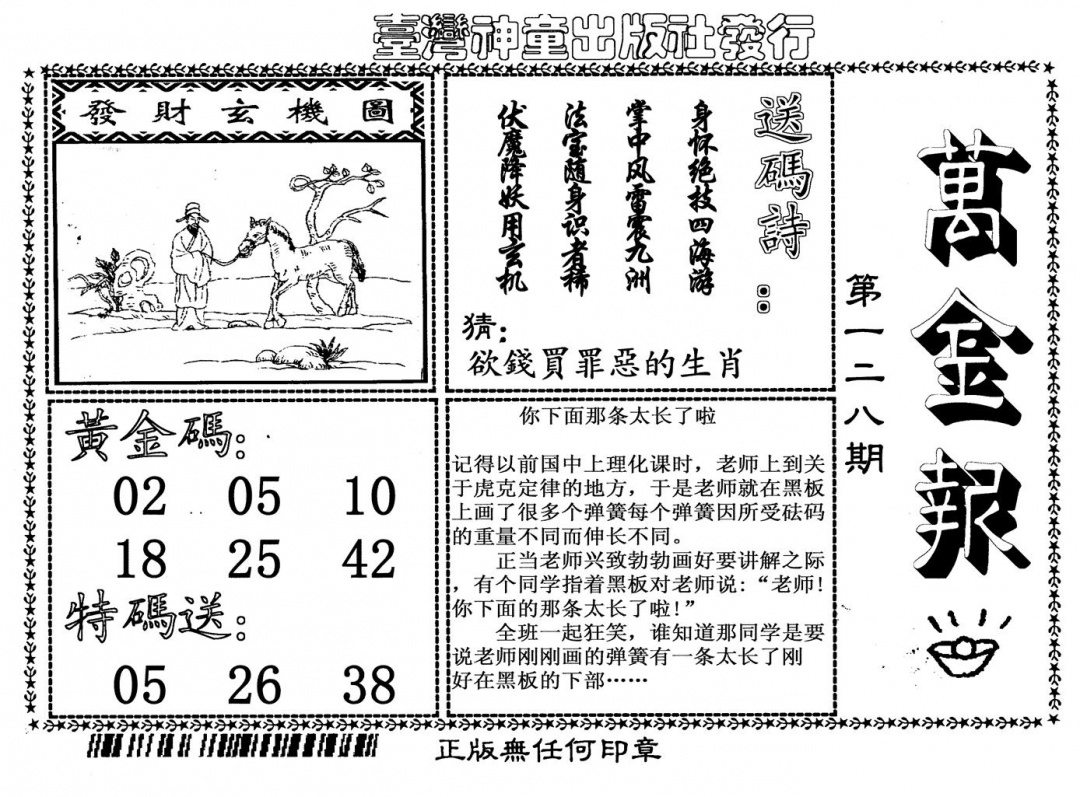 臺灣神童出版社發行
萬金報
第一二八期
發財玄機圖
送碼詩：
身怀绝技四海游
掌中风雷震九洲
法宝随身识者稀
伏魔降妖用玄机
猜：
欲錢買罪惡的生肖
黃金碼：
02 05 10
18 25 42
特碼送：
05 26 38
你下面那条太长了啦
记得以前国中上理化课时，老师上到关
于虎克定律的地方，于是老师就在黑板
上画了很多个弹簧每个弹簧因所受砝码
的重量不同而伸长不同。
正当老师兴致勃勃画好要讲解之际
，有个同学指着黑板对老师说：“老师！
你下面的那条太长了啦！”
全班一起狂笑，谁知道那同学是要
说老师刚刚画的弹簧有一条太长了刚
好在黑板的下部……
正版無任何印章